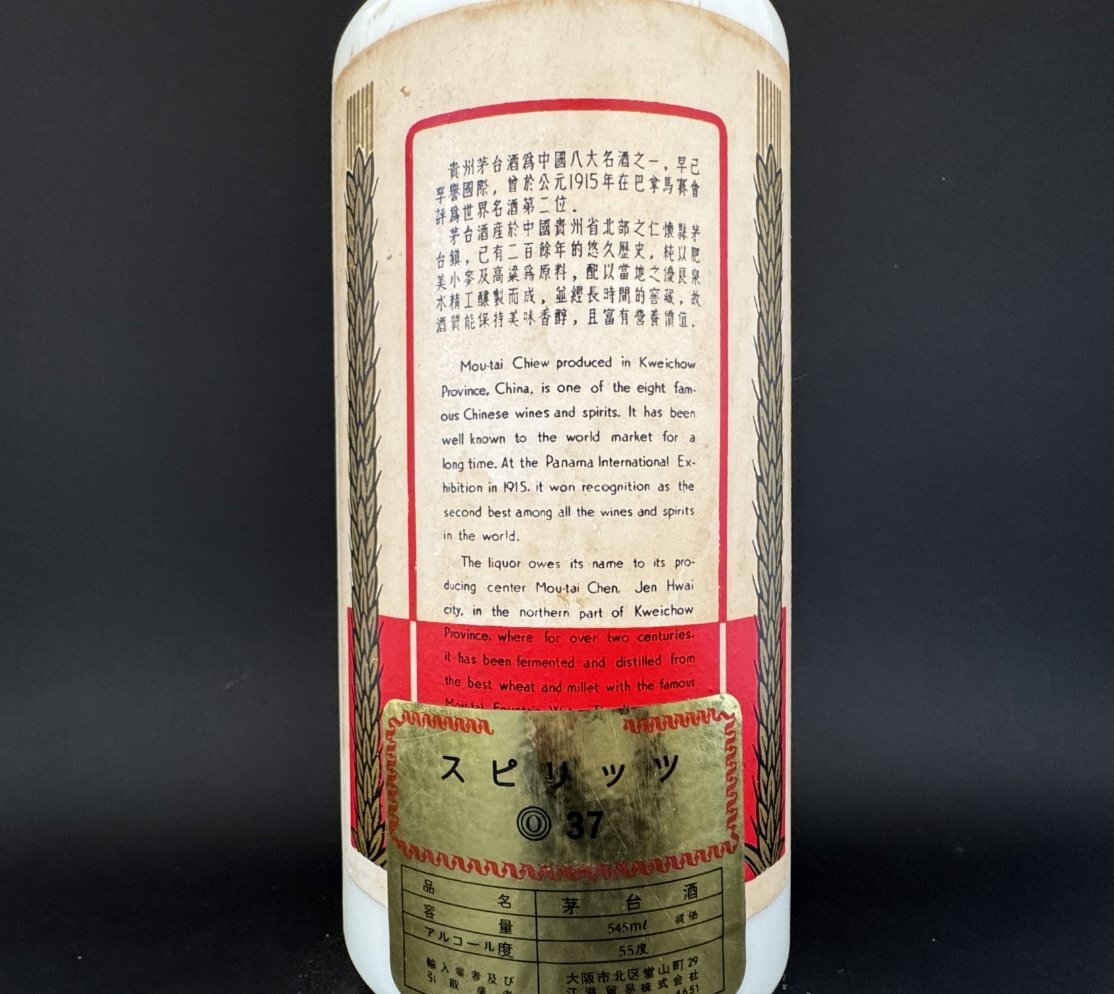 貴州茅台酒爲中國八大名酒之一，早已
享譽國際，曾於公元1915年在巴拿馬賽會
評爲世界名酒第二位．
茅台酒産於中國貴州省北部之仁懷縣茅
台鎮，已有二百餘年的悠久歷史，純以肥
美小麥及高粱爲原料，配以當地之優良泉
水精工釀製而成，並經長時間的窖藏，故
酒質能保持美味香醇，且富有營養價值．
Mou-tai Chiew produced in Kweichow
Province, China, is one of the eight fam-
ous Chinese wines and spirits. It has been
well known to the world market for a
long time. At the Panama International Ex-
hibition in 1915, it won recognition as the
second best among all the wines and spirits
in the world.
The liquor owes its name to its pro-
ducing center Mou-tai Chen, Jen Hwai
city, in the northern part of Kweichow
Province, where for over two centuries,
it has been fermented and distilled from
the best wheat and millet with the famous
Mou-tai Fountain
スピリッツ
O 37
品名 茅台酒
容量 545mℓ 従価
アルコール度 55度
輸入業者及び 大阪市北区堂山町29
引取業者 江滋貿易株式会社
4651